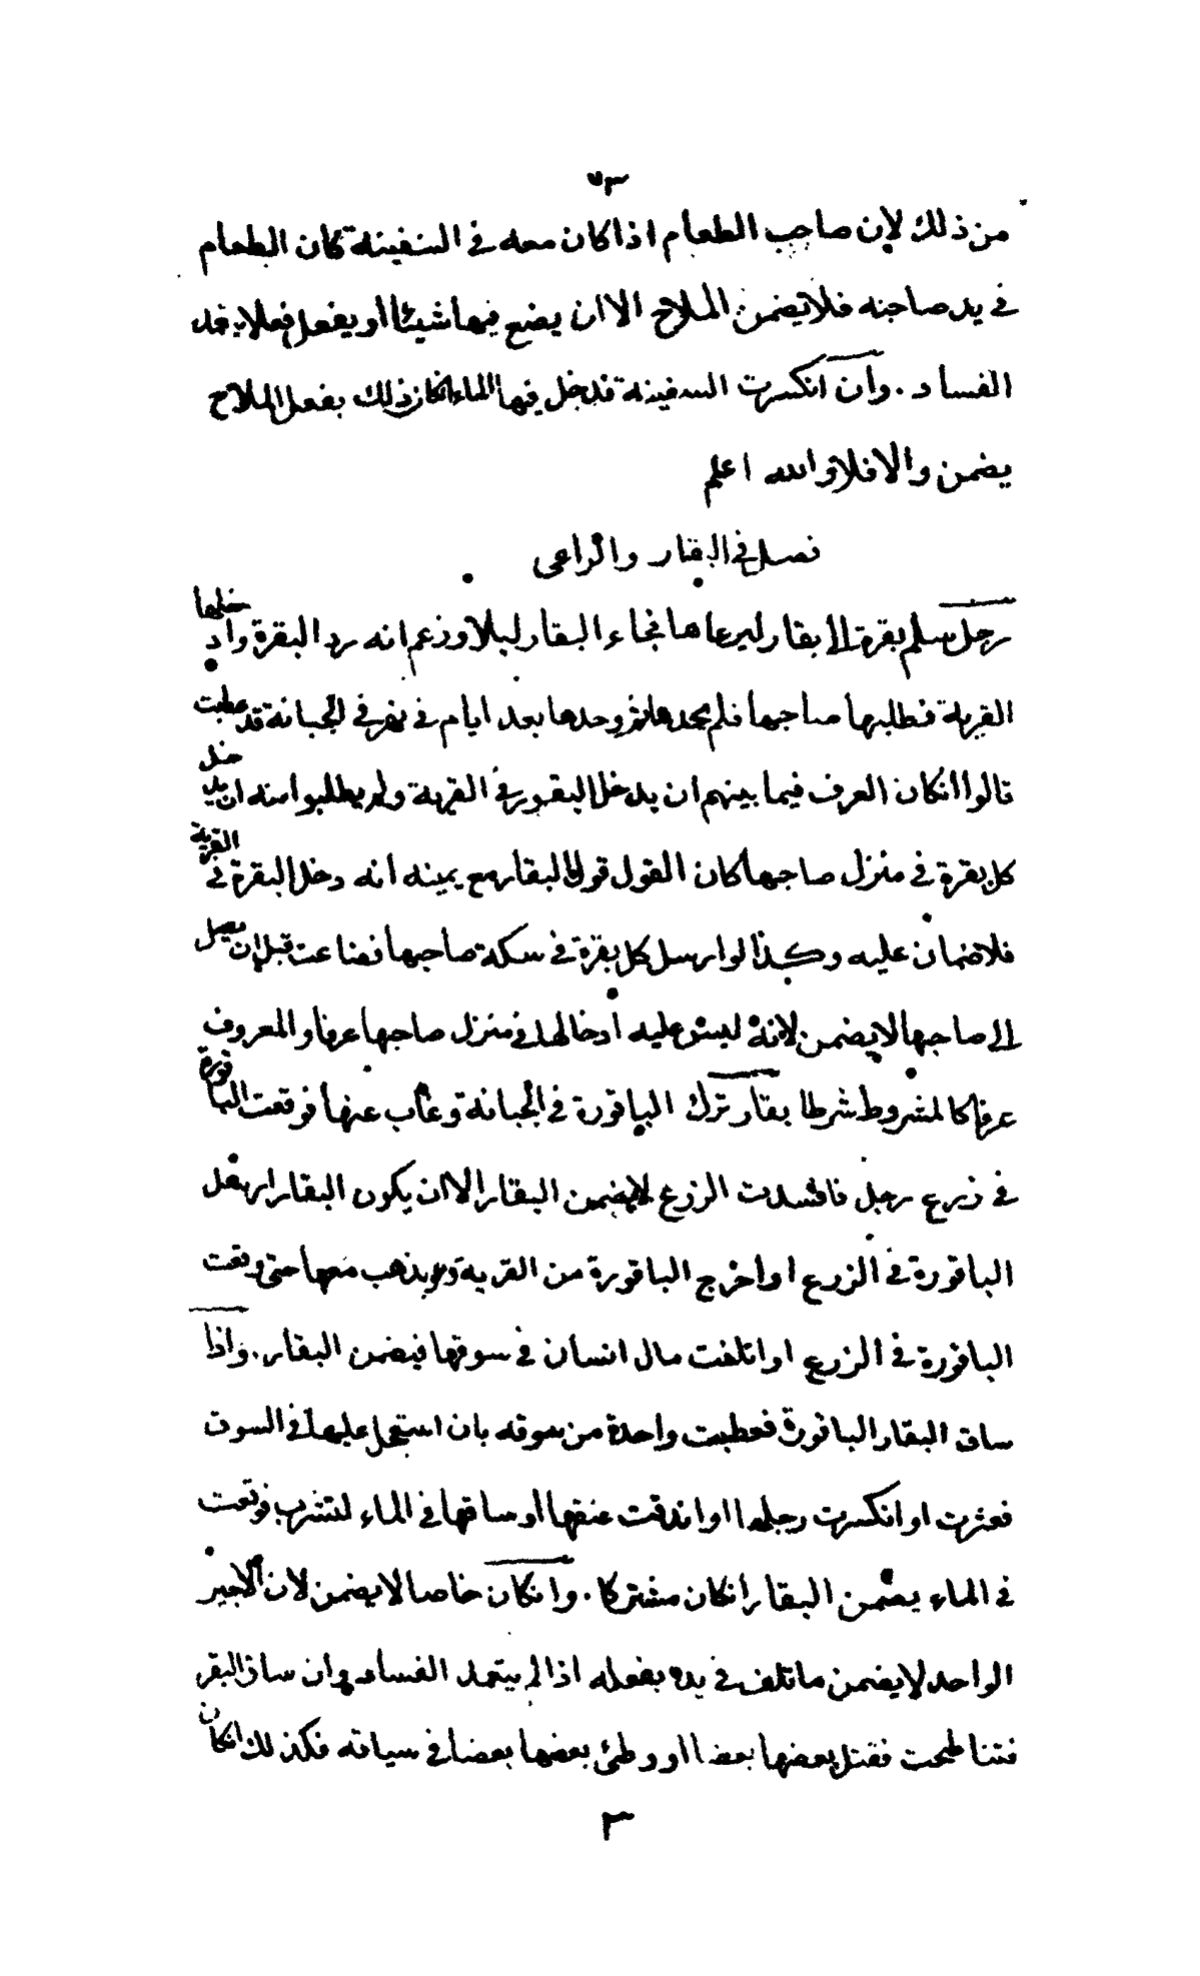 ٧٣
من ذلك لان صاحب الطعام اذا كان معه في السفينة كان الطعام
في يد صاحبه فلا يضمن الملاح الا ان يضع فيها شيئا او يفعل فعلا يتعمد
الفساد . وان انكسرت السفينة فدخل فيها الماء انكان ذلك بفعل الملاح
يضمن والا فلا والله اعلم
فصل في البقار والراعى
رجل سلم بقرة الى بقار ليرعاها فجاء البقار ليلا وزعم انه رد البقرة وادخلها
القرية فطلبها صاحبها فلم يجدها ثم وجدها بعد ايام في نهر في الجبانة قد عطبت
قالوا انكان العرف فيما بينهم ان يدخل البقور في القرية ولم يطلبوا منه ان يدخل
كل بقرة في منزل صاحبها كان القول قول البقار مع يمينه انه دخل البقرة في القرية
فلا ضمان عليه وكذا لو ارسل كل بقرة في سكة صاحبها فضاعت قبل ان تصل
الى صاحبها لا يضمن لانه ليس عليه ادخالها في منزل صاحبها عرفا والمعروف
عرفا كالمشروط شرطا بقار ترك الباقورة في الجبانة وغاب عنها فوقعت الباقورة
في زرع رجل فافسدت الزرع لا يضمن البقار الا ان يكون البقار ارسل
الباقورة في الزرع او اخرج الباقورة من القرية وهو يذهب معها حتى وقعت
الباقورة في الزرع او اتلفت مال انسان في سوقها فيضمن البقار . واذا
ساق البقار الباقورة فعطبت واحدة من سوقه بان استعجل عليها في السوق
فعثرت او انكسرت رجلها او اندقت عنقها او ساقها في الماء لتشرب فوقعت
في الماء يضمن البقار انكان مشتركا . وانكان خاصا لا يضمن لان الاجير
الواحد لا يضمن ما تلف في يده بفعله اذا لم يتعمد الفساد وان ساق البقر
فتناطحت فقتل بعضها بعضا او وطئ بعضها بعضا في سياقه فكذلك انكان
٣